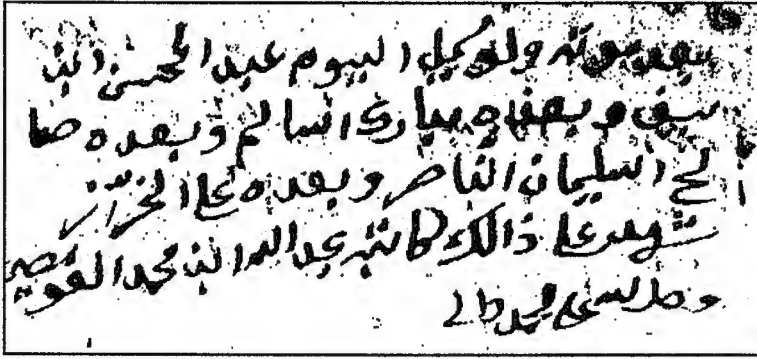 بعد موته ولوكيل اليوم عبد المحسن ابن
سيف وبعده مبارك السالم وبعده صا
لح السليمان الناصر وبعده علي الخزاز
شهد على ذالك كاتبه عبد الله ابن محمد القويصر
وصلى الله على محمد